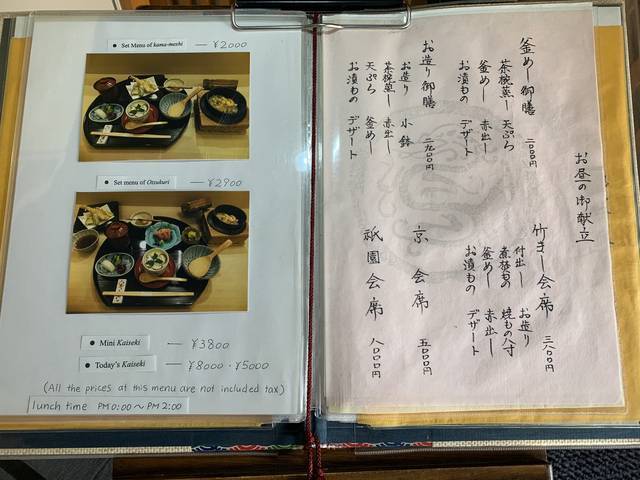 ● Set Menu of kama-meshi — ¥2000
● Set menu of Otsukuri — ¥2900
● Mini Kaiseki — ¥3800
● Today's Kaiseki — ¥8000・¥5000
(All the prices at this menu are not included tax)
lunch time PM0:00〜PM2:00
お昼の御献立
釜めし御膳 二〇〇〇円
茶椀蒸し 天ぷら
釜めし 赤出し
お漬もの デザート
お造り御膳 二九〇〇円
お造り 小鉢
茶椀蒸し 赤出し
天ぷら 釜めし
お漬もの デザート
竹ます会席 三八〇〇円
付出し お造り
煮焚もの 焼もの八寸
釜めし 赤出し
お漬もの デザート
京会席 五〇〇〇円
祇園会席 八〇〇〇円